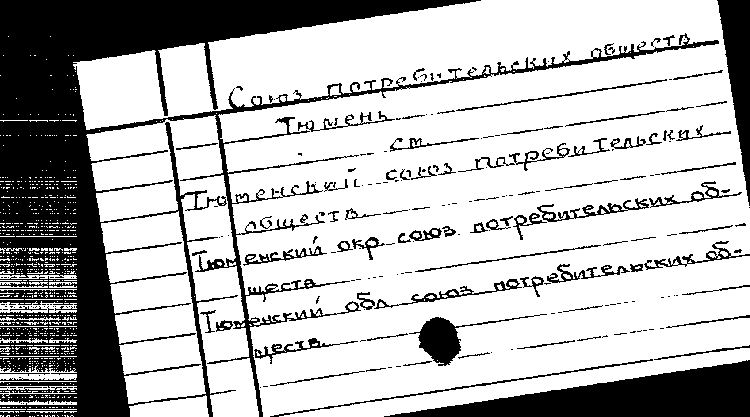 Союз потребительских обществ
Тюмень
см.
Тюменский союз потребительских
обществ.
Тюменский окр. союз потребительских об-
ществ
Тюменский обл союз потребительских об-
ществ.